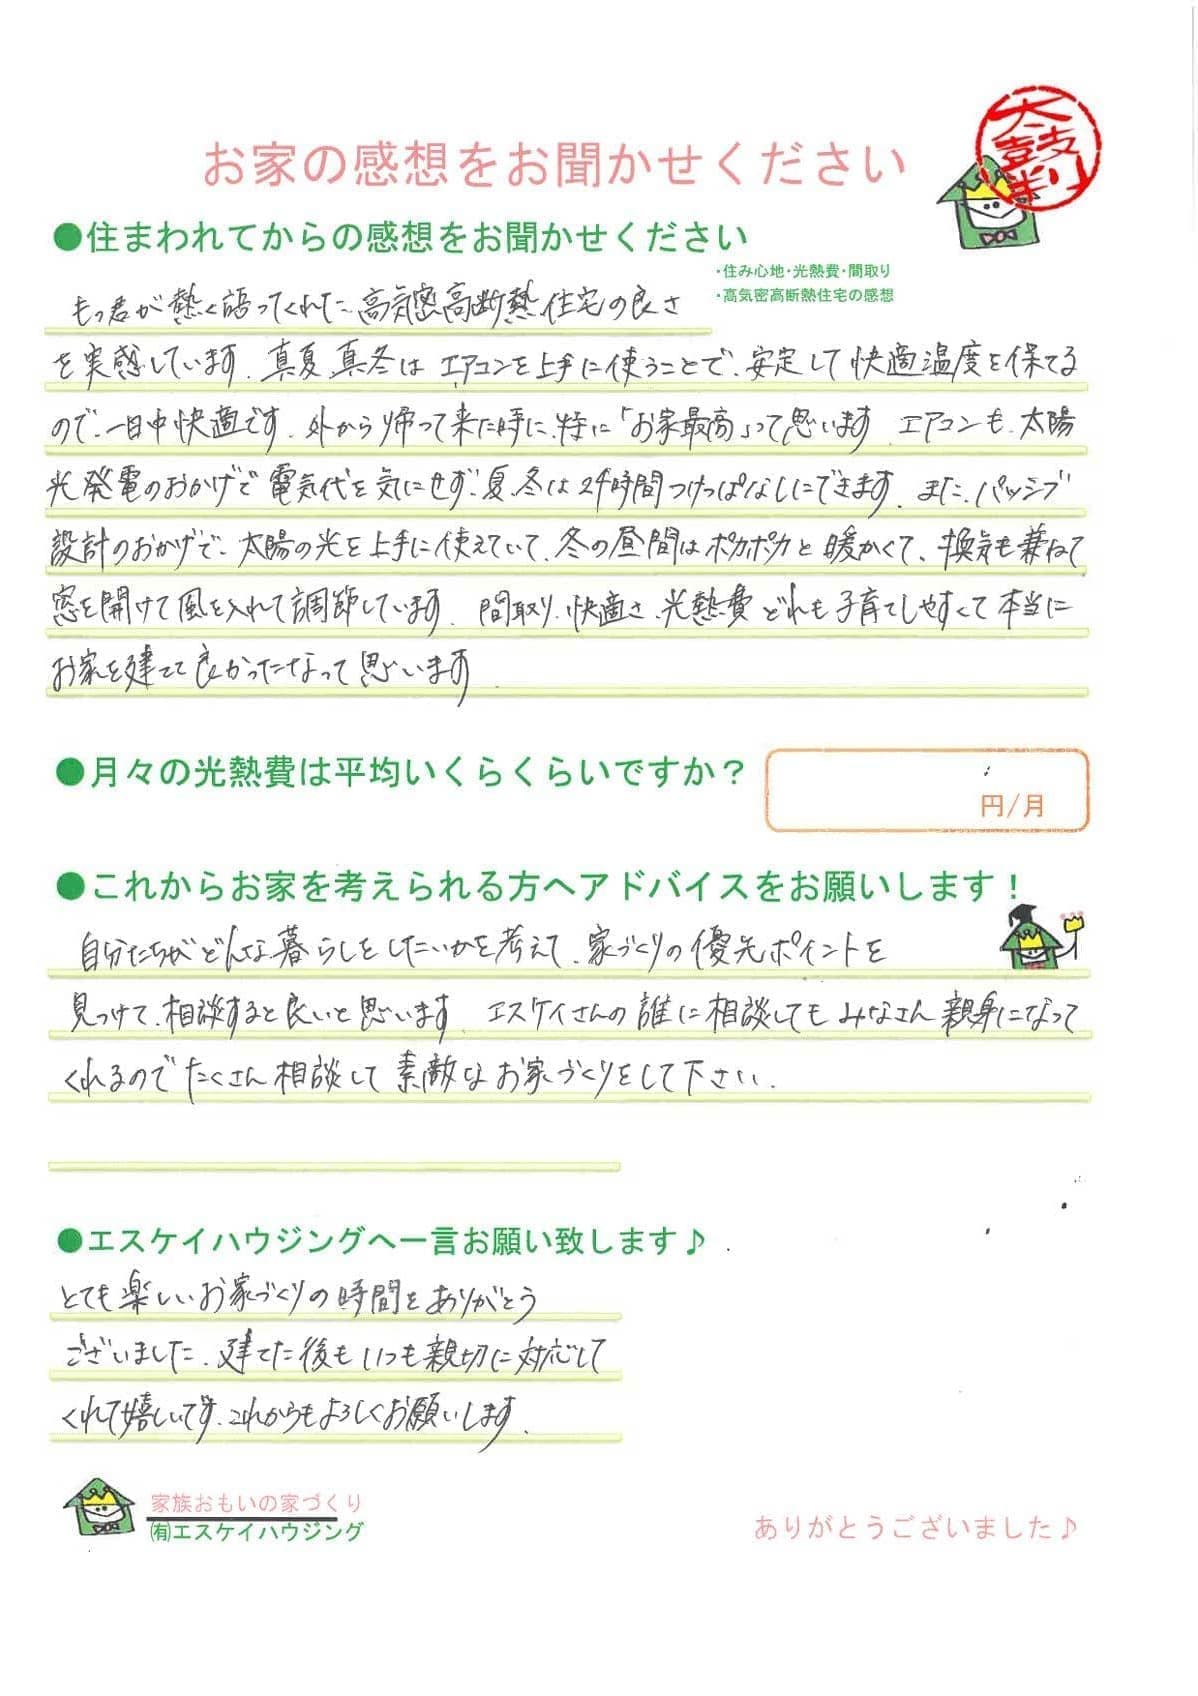 お家の感想をお聞かせください
太鼓判
●住まわれてからの感想をお聞かせください
・住み心地・光熱費・間取り
・高気密高断熱住宅の感想
もっ君が熱く語ってくれた、高気密高断熱住宅の良さ
を実感しています。真夏、真冬はエアコンを上手に使うことで、安定して快適温度を保てる
ので、一日中快適です。外から帰って来た時に、特に「お家最高」って思います。エアコンも、太陽
光発電のおかげで電気代を気にせず、夏、冬は24時間つけっぱなしにできます。また、パッシブ
設計のおかげで、太陽の光を上手に使えていて、冬の昼間はポカポカと暖かくて、換気も兼ねて
窓を開けて風を入れて調節しています。間取り、快適さ、光熱費どれも子育てしやすくて本当に
お家を建てて良かったなって思います
●月々の光熱費は平均いくらくらいですか？
円/月
●これからお家を考えられる方へアドバイスをお願いします！
自分たちがどんな暮らしをしたいかを考えて、家づくりの優先ポイントを
見つけて、相談すると良いと思います。エスケイさんの誰に相談してもみなさん親身になって
くれるのでたくさん相談して素敵なお家づくりをして下さい。
●エスケイハウジングへ一言お願い致します♪
とても楽しいお家づくりの時間をありがとう
ございました。建てた後もいつも親切に対応して
くれて嬉しいです。これからもよろしくお願いします。
家族おもいの家づくり
㈲エスケイハウジング
ありがとうございました♪